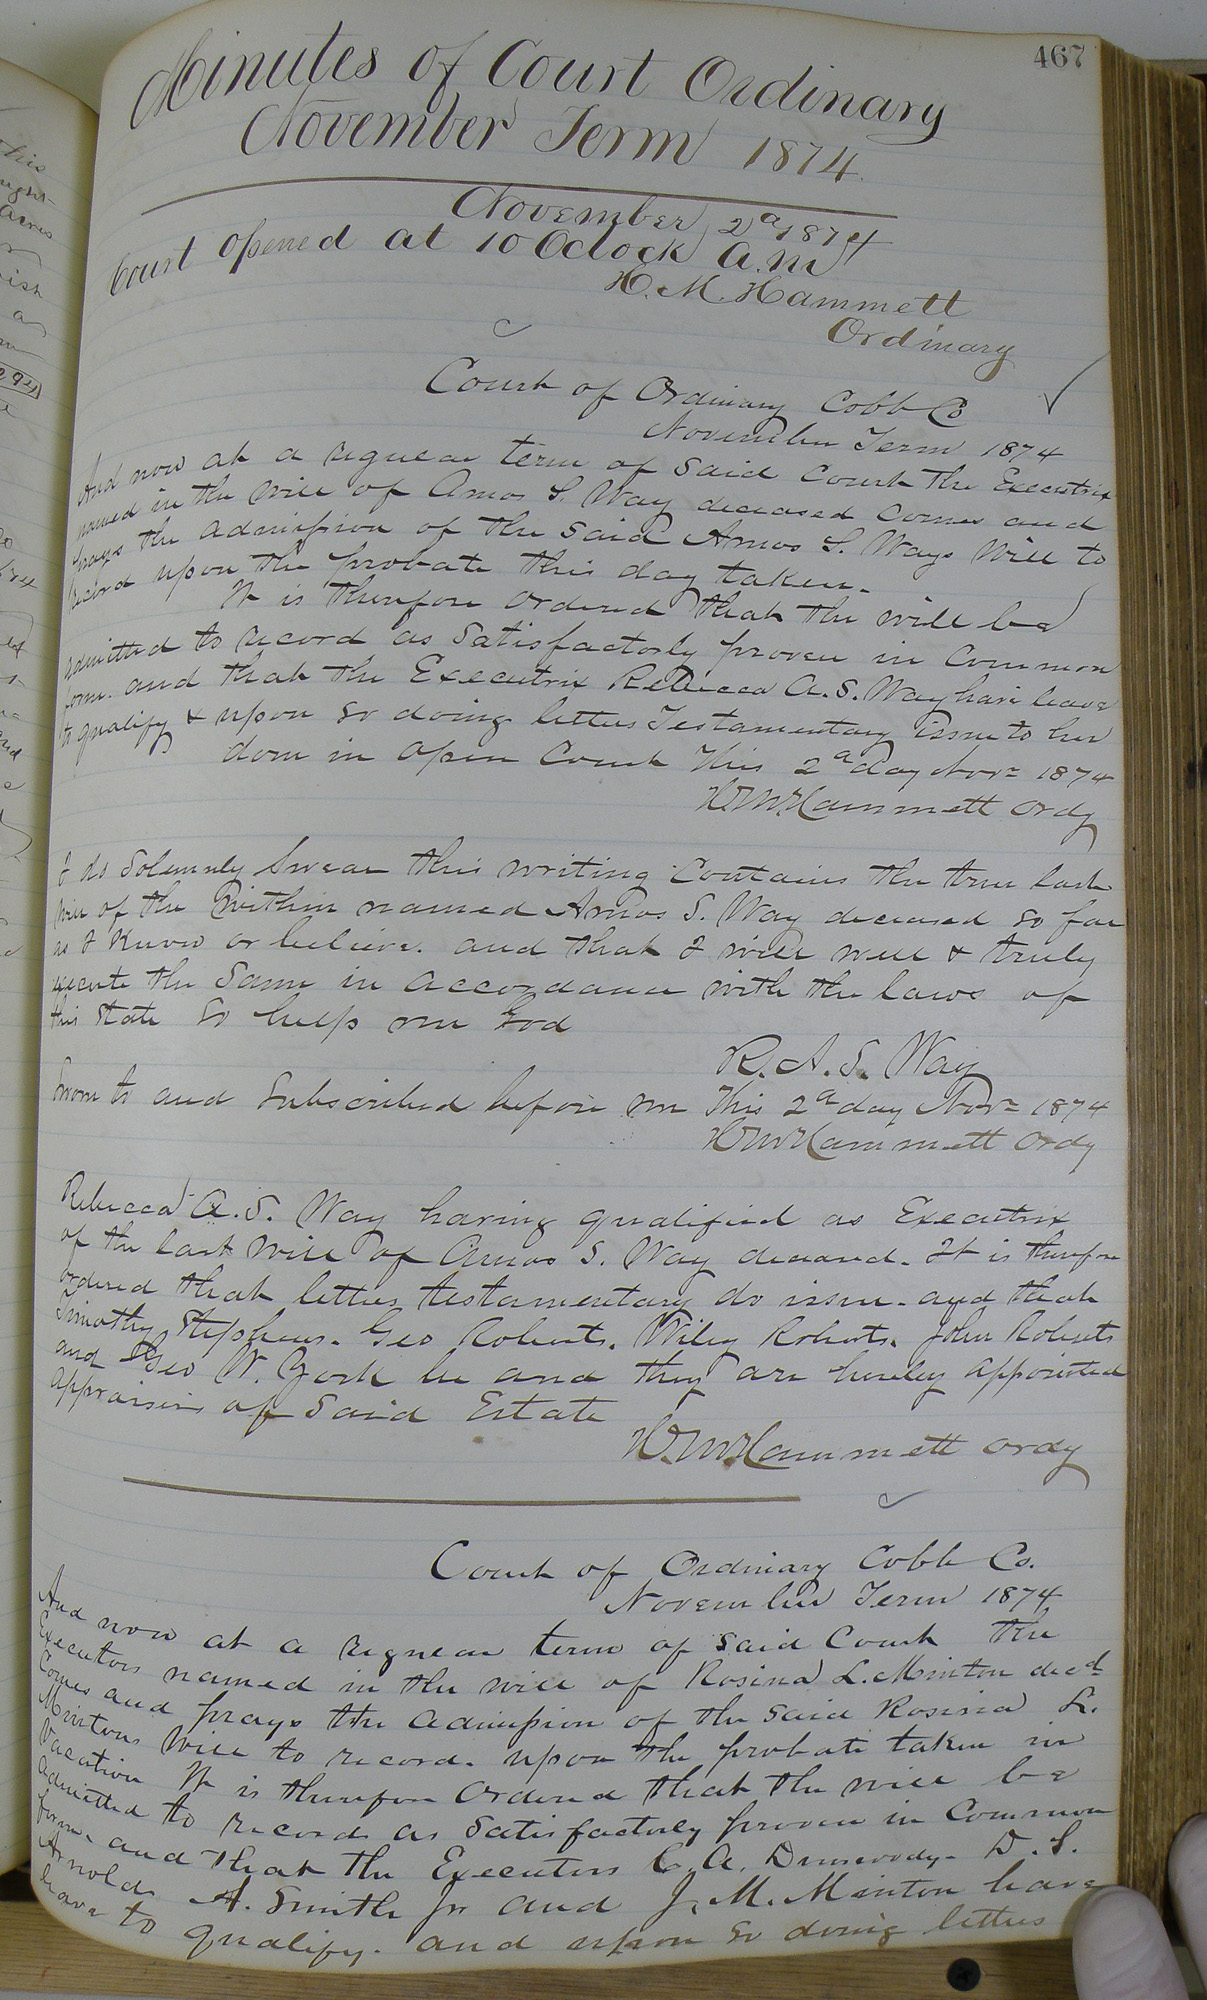 467
Minutes of Court Ordinary
November Term 1874.
November 2d 1874
Court opened at 10 Oclock A.M
H. M. Hammett
Ordinary
Court of Ordinary Cobb Co
November Term 1874
And now at a regular term of said Court the Executrix
named in the will of Amos S. Way deceased comes and
prays the admission of the said Amos S. Ways will to
record upon the probate this day taken.
It is therefore ordered that the will be
admitted to record as satisfactorly proven in Common
form. and that the Executrix Rebecca A. S. Way have leave
to qualify & upon so doing letters Testamentary issue to her
done in open Court This 2d day Novr 1874
H M Hammett Ordy
I do Solemnly Swear this writing Contains the true last
will of the within named Amos S. Way deceased so far
as I Know or believe. and that I will well & truly
execute the same in accordance with the laws of
this State So help me God
R. A. S. Way
Sworn to and Subscribed before me This 2d day Novr 1874
H M Hammett Ordy
Rebecca A. S. Way having qualified as Executrix
of the last will of Amos S. Way deceased. It is therefore
ordered that letters testamentary do issue. and that
Timothy Stephens. Geo Roberts. Wiley Roberts. John Roberts
and Geo W. York be and they are hereby appointed
appraisers of said Estate
H. M. Hammett Ordy
Court of Ordinary Cobb Co.
November Term 1874
And now at a regular term of said Court the
Executors named in the will of Rosina L. Minton decd
Comes and prays the admission of the said Rosina L.
Mintons will to record. upon the probate taken in
Vacation It is therefore Ordered that the will be
admitted to record as satisfactorly proven in Common
form. and that the Executors C. A. Dunwody. D. S.
Arnold. A. Smith Jr and J. M. Minton have
leave to qualify. and upon so doing letters